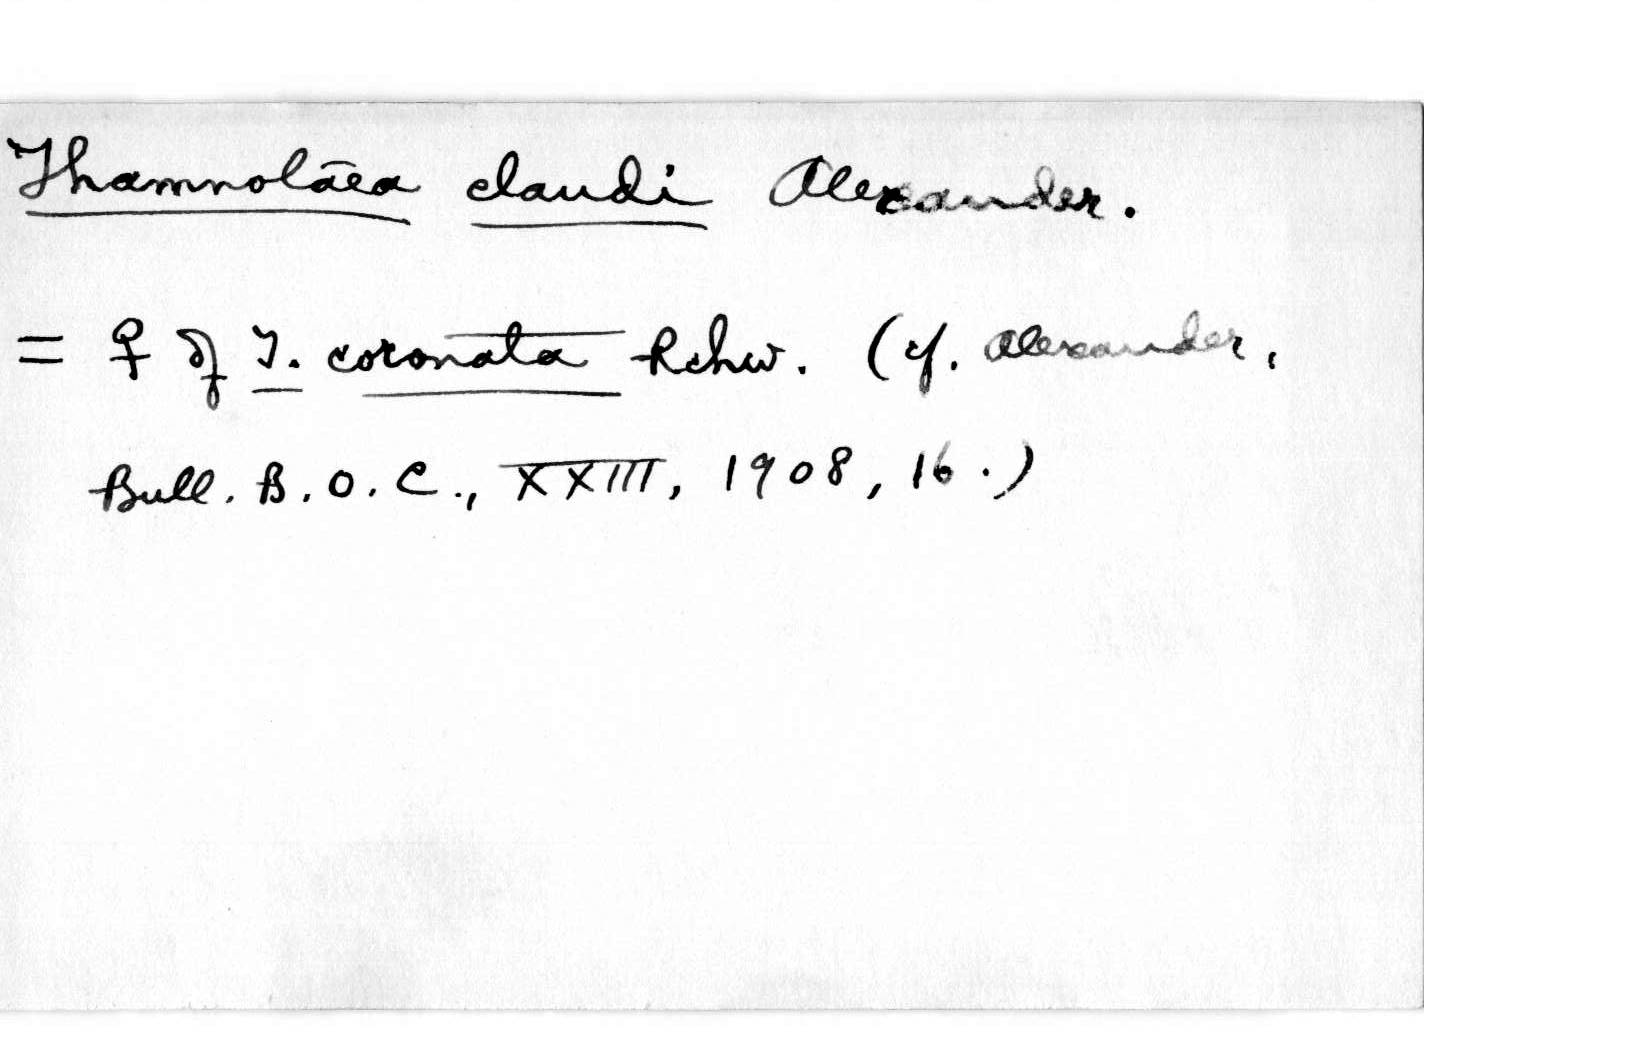 Thamnolāea claudi Alexander.
= ♀ of T. coronata Rchw. (cf. Alexander,
Bull. B.O.C., XXIII, 1908, 16.)